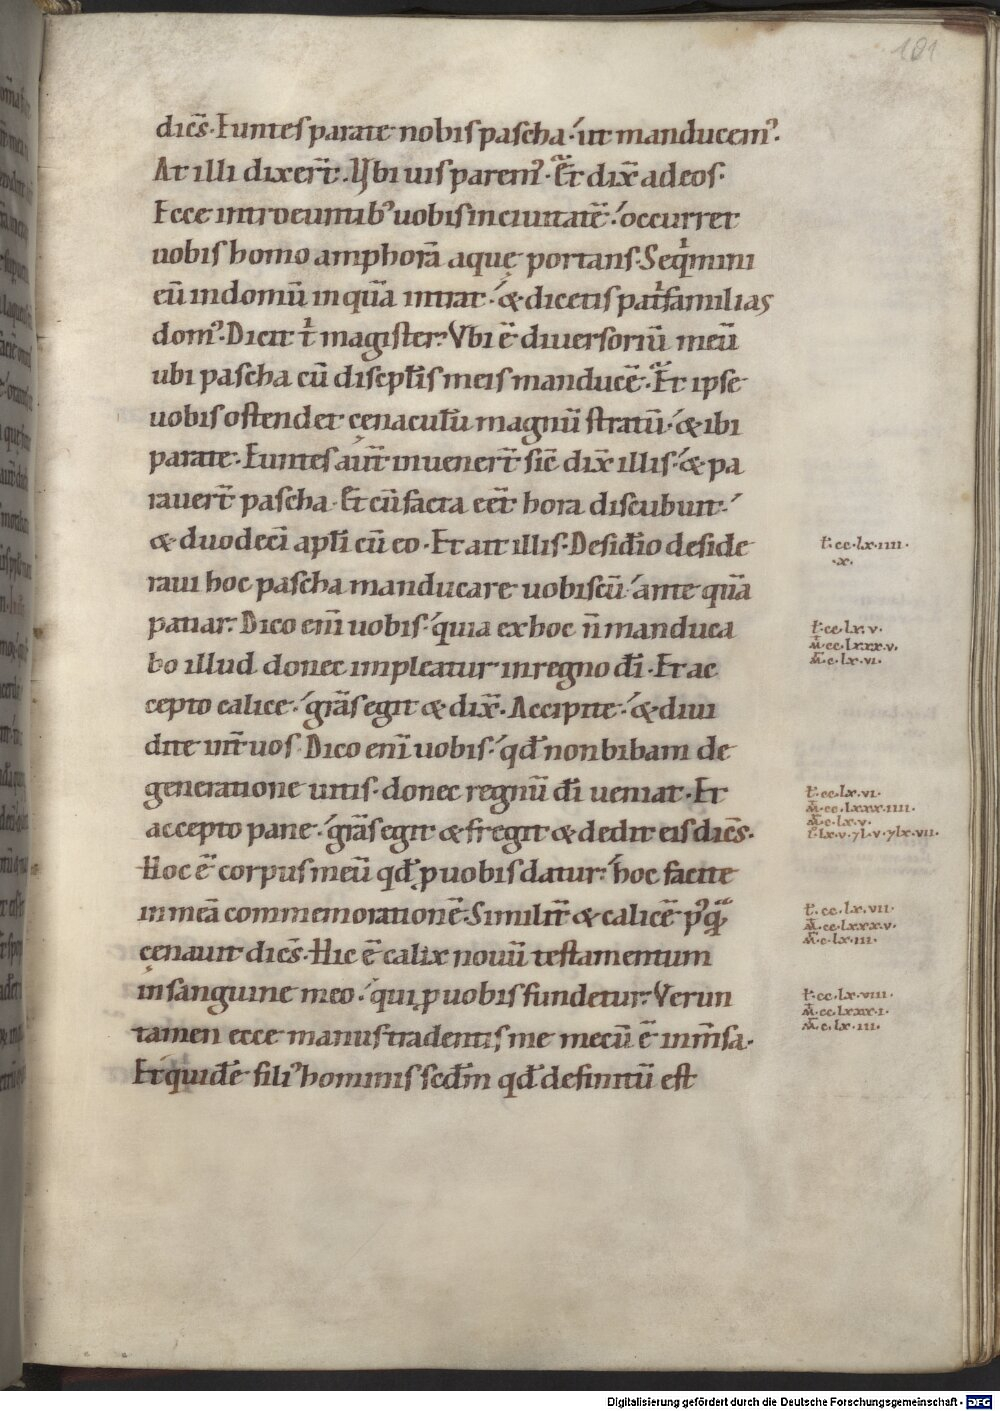 101
dicēs. Euntes parate nobis pascha. ut manducem᾽.
At illi dixer̄t. Vbi uis parem᾽. Et dix̄ ad eos.
Ecce introeuntib᾽ uobis in ciuitatē. occurret
uobis homo amphorā aquę portans. Seqⁱmini
eū in domū in quā intrat. & dicetis pat̄familias
dom᾽. Dicit tⁱ magister. Vbi ē diuersoriū meū
ubi pascha cū discipl̄is meis manducē. Et ipse
uobis ostendet cęnacul̄u magnū stratū. & ibi
parate. Euntes aūt inuener̄t sic̄ dix̄ illis. & pa
rauer̄t pascha. Et cū facta eēt hora discubuit.
& duodeci̅ apl̄i cū eo. Et ait illis. Desid̄io deside
raui hoc pascha manducare uobiscū. ante quā
patiar. Dico eni̅ uobis. quia ex hoc n̄ manduca
bo illud donec impleatur in regno dī. Et ac
cepto calice. grās egit & dix̄. Accipite. & diui
dite int̄ uos. Dico eni̅ uobis. qd̄ non bibam de
generatione uitis. donec regnū dī ueniat. Et
accepto pane. grās egit & fregit & dedit eis dicēs.
Hoc ē corpus meū qd̄ ꝓ uobis datur. hoc facite
in meā commemorationē. Similit̄ & calicē p᾽qᵃ̄
cęnauit dicēs. Hic ē calix nouū testamentum
in sanguine meo. qui ꝓ uobis fundetur. Verun
tamen ecce manus tradentis me mecū ē in m̄sa.
Et quidē fili᾽ hominis scd̄m qd̄ definitū est
ł. cc. lx. iiii.
.x.
ł. cc. lx. v.
M̄. cc. lxxx. v.
M̄. c. lx. vi.
ł. cc. lx. vi.
M̄. cc. lxxx. iiii.
M̄. c. lx. v.
ł. cc. lx. vii.
M̄. cc. lxxx. v.
M̄. c. lx. iii.
ł. cc. lx. viii.
M̄. cc. lxxx. i.
M̄. c. lx. iii.
Digitalisierung gefördert durch die Deutsche Forschungsgemeinschaft - DFG